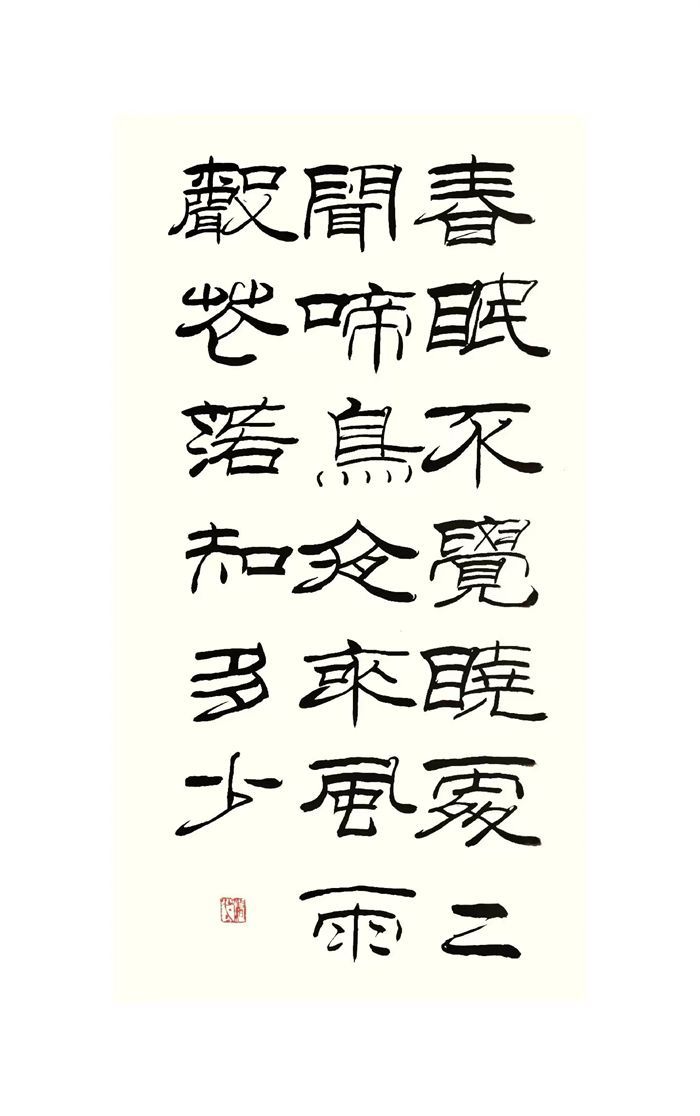 春眠不覺曉處二
聞啼鳥夜來風雨
聲花落知多少